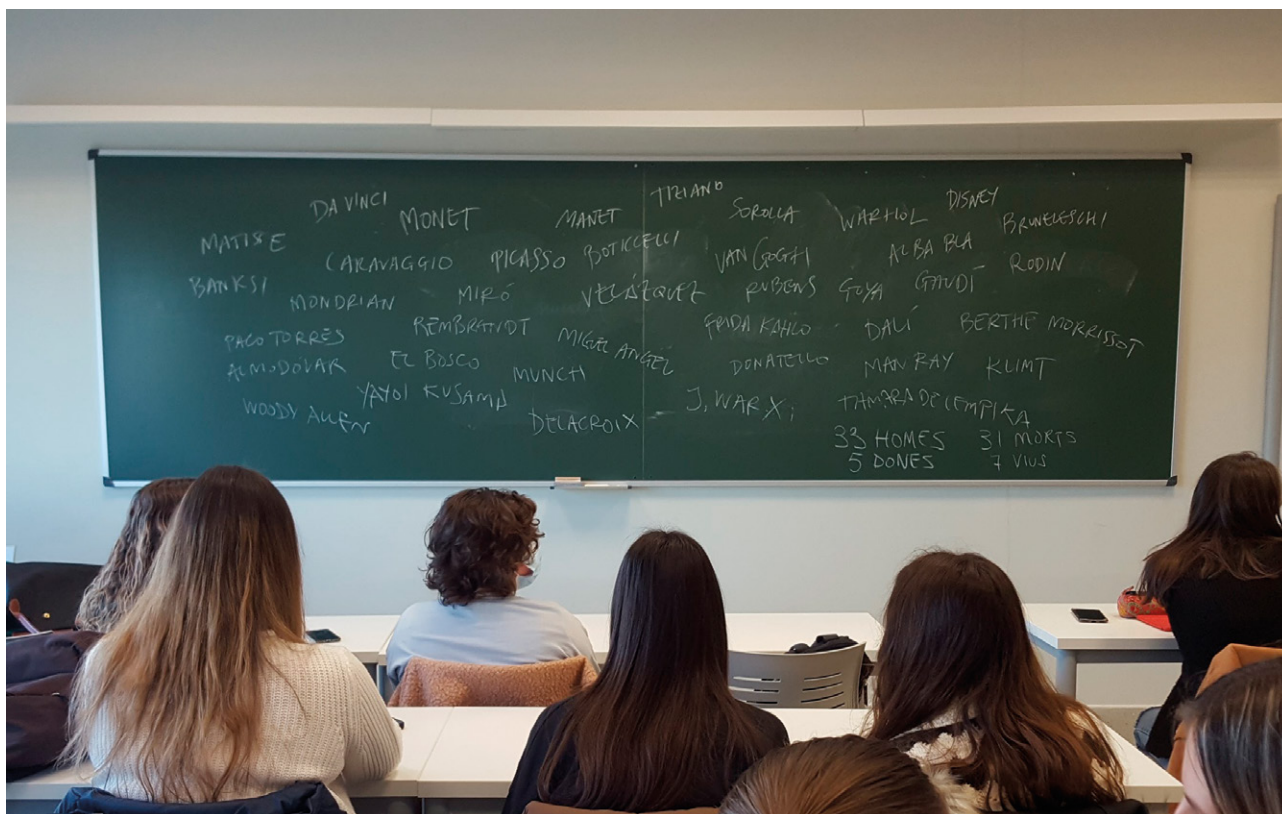 DA VINCI MONET MANET TIZIANO SOROLLA WARHOL DISNEY BRUNELESCHI
MATISSE CARAVAGGIO PICASSO BOTICCELLI VAN GOGH ALBA BLA RODIN
BANKSI MONDRIAN MIRÓ VELÁZQUEZ RUBENS GOYA GAUDÍ
PACO TORRES REMBRANDT MIGUEL ANGEL FRIDA KAHLO DALÍ BERTHE MORRISSOT
ALMODÓVAR EL BOSCO MUNCH DONATELLO MAN RAY KLIMT
WOODY ALLEN YAYOI KUSAMA DELACROIX J. WARX; TAMARA DE LEMPIKA
33 HOMES 31 MORTS
5 DONES 7 VIUS